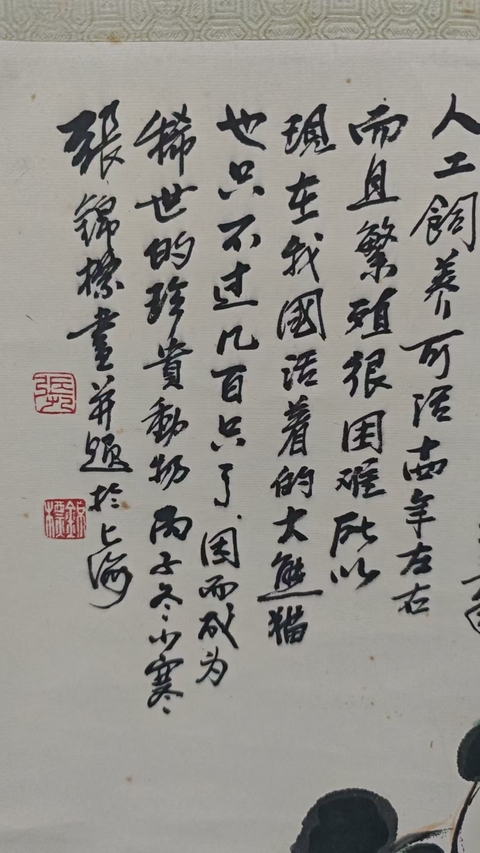 人工飼养可活年左右
而且繁殖很困難所以
現在我國活着的大熊猫
也只不过几百只了因而成为
稀世的珍貴動物丙子冬小寒
張錦標畫并题於上海
張
錦標